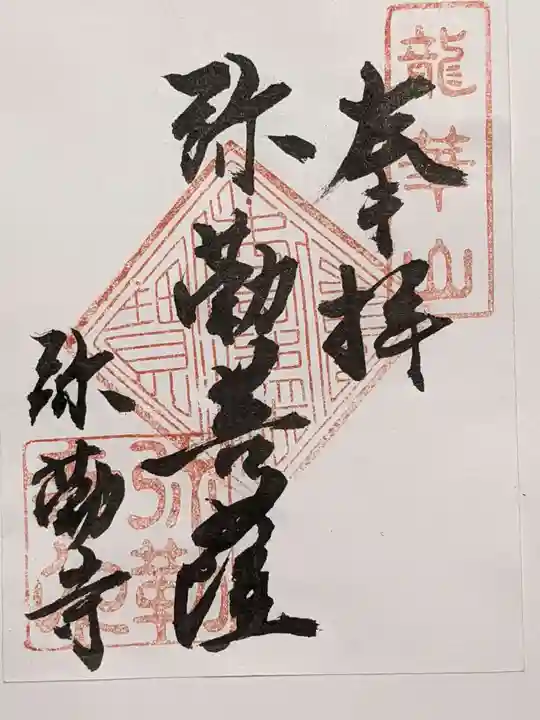 龍華山
奉拝
弥勒菩薩
弥勒寺